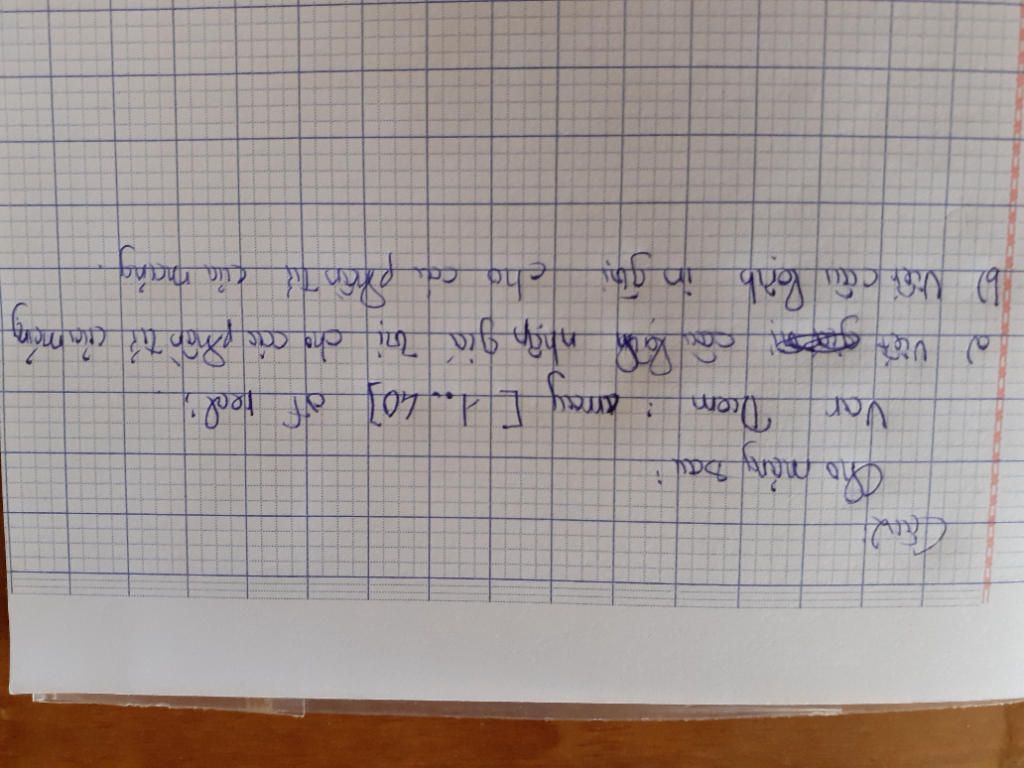 Câu 2:
Cho mảng sau:
Var Diem : array [1..40] of real;
a) Viết câu lệnh nhập giá trị cho các phần tử của mảng
b) Viết câu lệnh in giá trị cho các phần tử của mảng.